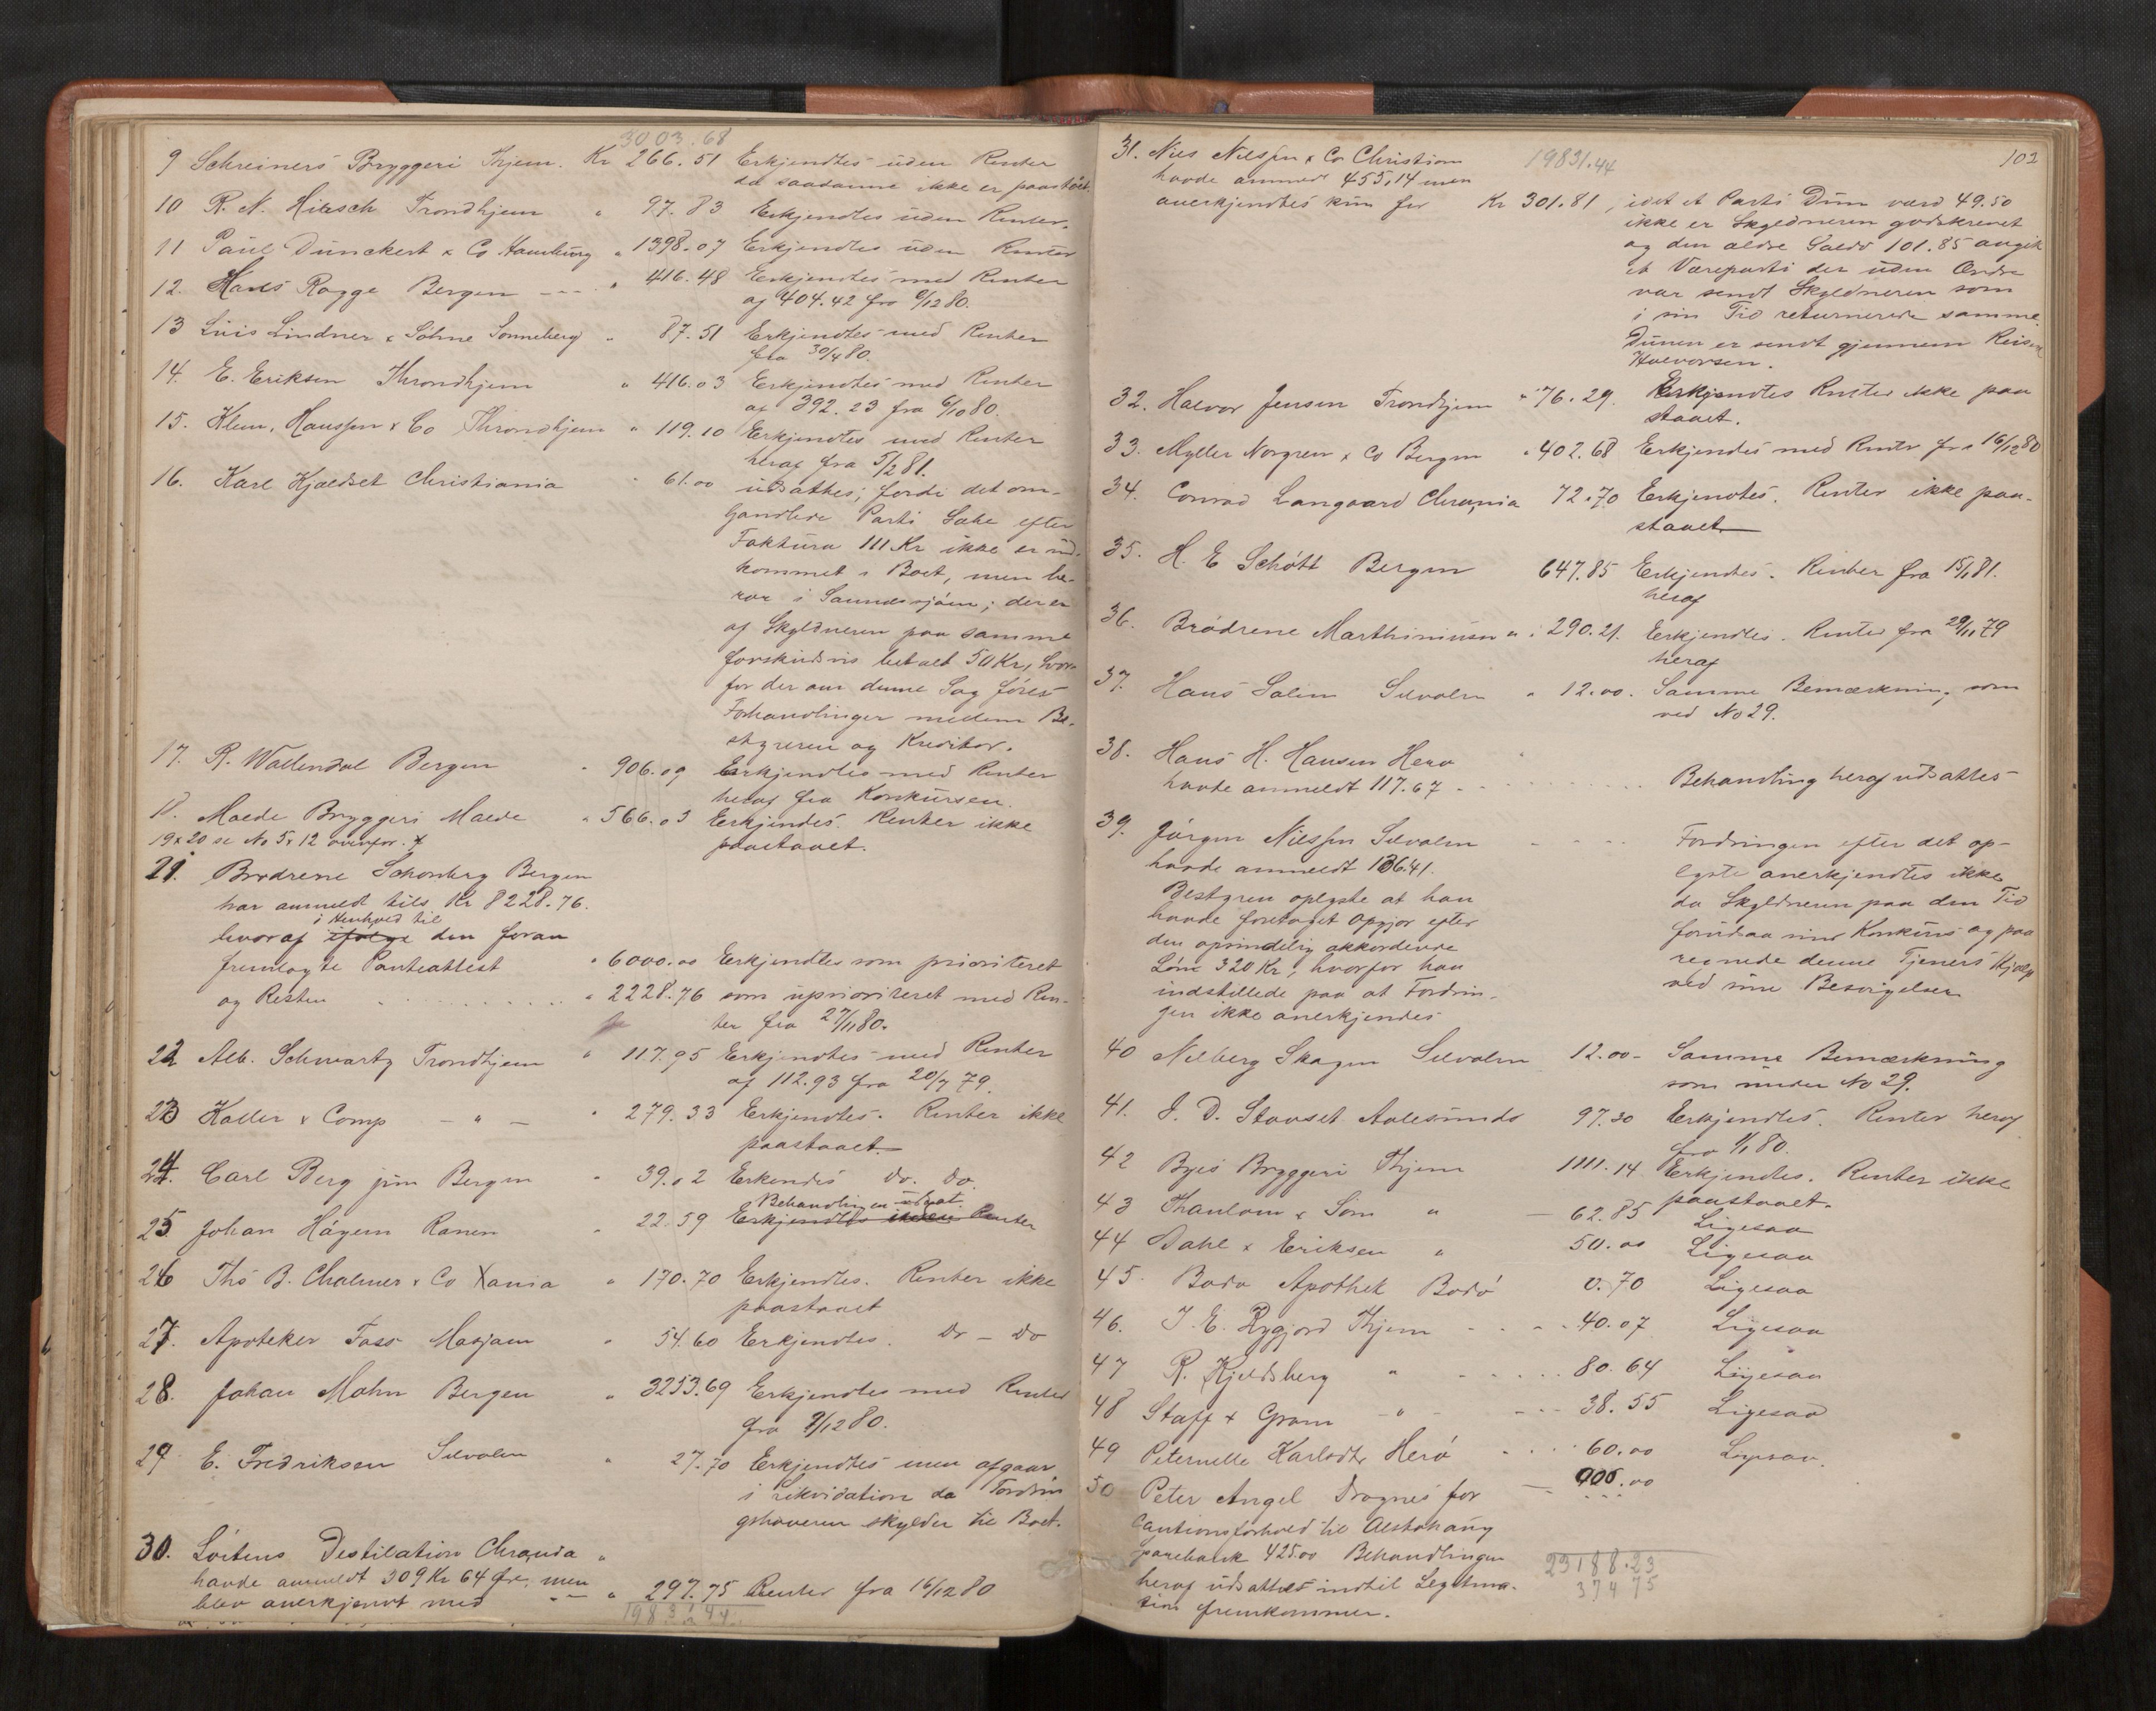 3003.68
9 Schreiners Bryggeri Thjem. Kr 266.51 Erkjendtes uden Renter
da saadanne ikke er paastaaet.
10 R. N. Hirsch Trondhjem " 97.83 Erkjendtes uden Renter.
11 Paul Dunckert & Co Hamburg " 1398.07 Erkjendtes uden Renter
12. Hans Rogge Bergen - - - " 416.48 Erkjendtes med Renter
af 404.42 fra 9/12 80.
13 Luis Lindner & Söhne Sonneberg " 87.51 Erkjendtes med Renter
fra 30/4 80.
14. E. Eriksen Throndhjem " 416.03 Erkjendtes med Renter
af 392.23 fra 6/10 80.
15. Klem, Hanssen & Co Throndhjem " 119.10 Erkjendtes med Renter
heraf fra 5/2 81.
16. Karl Kjældset Christiania " 61.00 udsattes, fordi det om-
handlede Parti Sæbe efter
Faktura 111 Kr ikke er ind-
kommet i Boet, men be-
ror i Sannessjøen; der er
af Skyldneren paa samme
forskudsvis betalt 50 Kr, hvor-
for der om denne Sag føres
Forhandlinger mellem Be-
styreren og Kreditor.
17. R. Wallendal Bergen " 906.09 Erkjendtes med Renter
heraf fra Konkursen.
18. Molde Bryggeri Molde " 566.03 Erkjendes. Renter ikke
paastaaet.
19 & 20 se No 5 & 12 ovenfor.
21. Brødrene Schonberg Bergen
har anmeldt tils. Kr 8228.76.
i Henhold til
hvoraf ifølge den foran
fremlagte Panteattest " 6000.00 Erkjendtes som prioriteret
og Resten . . . . . . . " 2228.76 som uprioriteret med Ren-
ter fra 27/11 80.
22 Alb. Schwartz Trondhjem " 117.95 Erkjendtes med Renter
af 112.93 fra 20/7 79.
23 Koller & Comp - " - " 279.33 Erkjendtes. Renter ikke
paastaaet.
24. Carl Berg jun Bergen " 39.02 Erkendes Do. Do.
Behandlingen udsat.
25 Johan Hågem Ranen " 22.59 Erkjendtes uden Renter
26 Ths B. Chalmer & Co Xania " 170.70 Erkjendtes. Renter ikke
paastaaet
27. Apoteker Foss Mosjøen " 54.60 Erkjendtes. Do - Do
28. Johan Mohn Bergen " 3253.69 Erkjendtes med Renter
fra 9/12 80.
29 E. Fredriksen Silvalen " 27.70 Erkjendtes men afgaar
i Likvidation da Fordrin
gshaveren skylder til Boet.
30. Løitens Destilation Chrania "
havde anmeldt 309 Kr 64 Øre, men
blev anerkjendt med - - " 297.75 Renter fra 16/12 80
19831.44.
102
31. Nils Nilssen & Co Christian 19831.44
havde anmeldt 455,14 men
anerkjendtes kun for Kr 301.81, idet et Parti Dun værd 49.50
ikke er Skyldneren godskrevet
og den ældre Saldo 101.85 angik
et Vareparti der uden Ordre
var sendt Skyldneren som
i sin Tid returnerede samme.
Dunen er sendt gjennem Reisen
Halvorsen.
32. Halvor Jensen Trondhjem " 76.29. Erkjendtes Renter ikke paa
staaet.
33. Myller Norgren & Co Bergen " 402.68 Erkjendes med Renter fra 16/12 80
34. Conrad Langaard Chrania 72.70 Erkjendtes. Renter ikke paa-
staaet
35. H. E Schøtt Bergen 647.85 Erkjendtes. Renter fra 15/1 81.
heraf
36. Brødrene Marthinusen " 290.21. Erkjendtes. Renter fra 29/11 79
heraf
37. Hans Salim Silvalen " 12.00. Samme Bemærkning som
ved No 29.
38. Hans H. Hansen Herø
havde anmeldt 117.67 - . . . . . . Behandling heraf udsattes
39. Jørgen Nilssen Silvalen - - - Fordringen efter det op-
havde anmeldt 136.41. lyste anerkjendtes ikke
Bestyren oplyste at han da Skyldneren paa den Tid
havde foretaget Opgjør efter forudsaa sin Konkurs og paa
den oprindelig akkorderede regnede denne Tjeners Hjælp
Løn 320 Kr, hvorfor han ved sine Besvigelser
indstillede paa at Fordrin-
gen ikke anerkjendes
40 Nilberg Skagen Silvalen 12.00 - Samme Bemærkning
som under No 29.
41. J. D. Stavset Aalesunds 97.30 Erkjendtes. Renter heraf
fra 1/1 80.
42 Byes Bryggeri Thjem 1111.14 Erkjendtes. Renter ikke
paastaaet.
43 Thaulow & Søn " - 62.85 Ligesaa
44 Dahl & Eriksen " 50.00 Ligesaa
45. Bodø Apothek Bodø 0.70 Ligesaa
46. J. E. Rygjord Thjem - - - 40.07 Ligesaa
47 R. Kjeldsberg " - . . . . 80.64 Ligesaa
48 Staff & Gram - " - - - - 38.55 Ligesaa
49 Peternelle Karlsdtr Herø . . . . 60.00 Ligesaa.
50 Peter Angel Drognes for - 000.00
Cautionsforhold til Alstahaug
Sparebank 425.00 Behandlingen
heraf udsattes indtil Legitima-
tion fremkommer.
23188.23
374 75